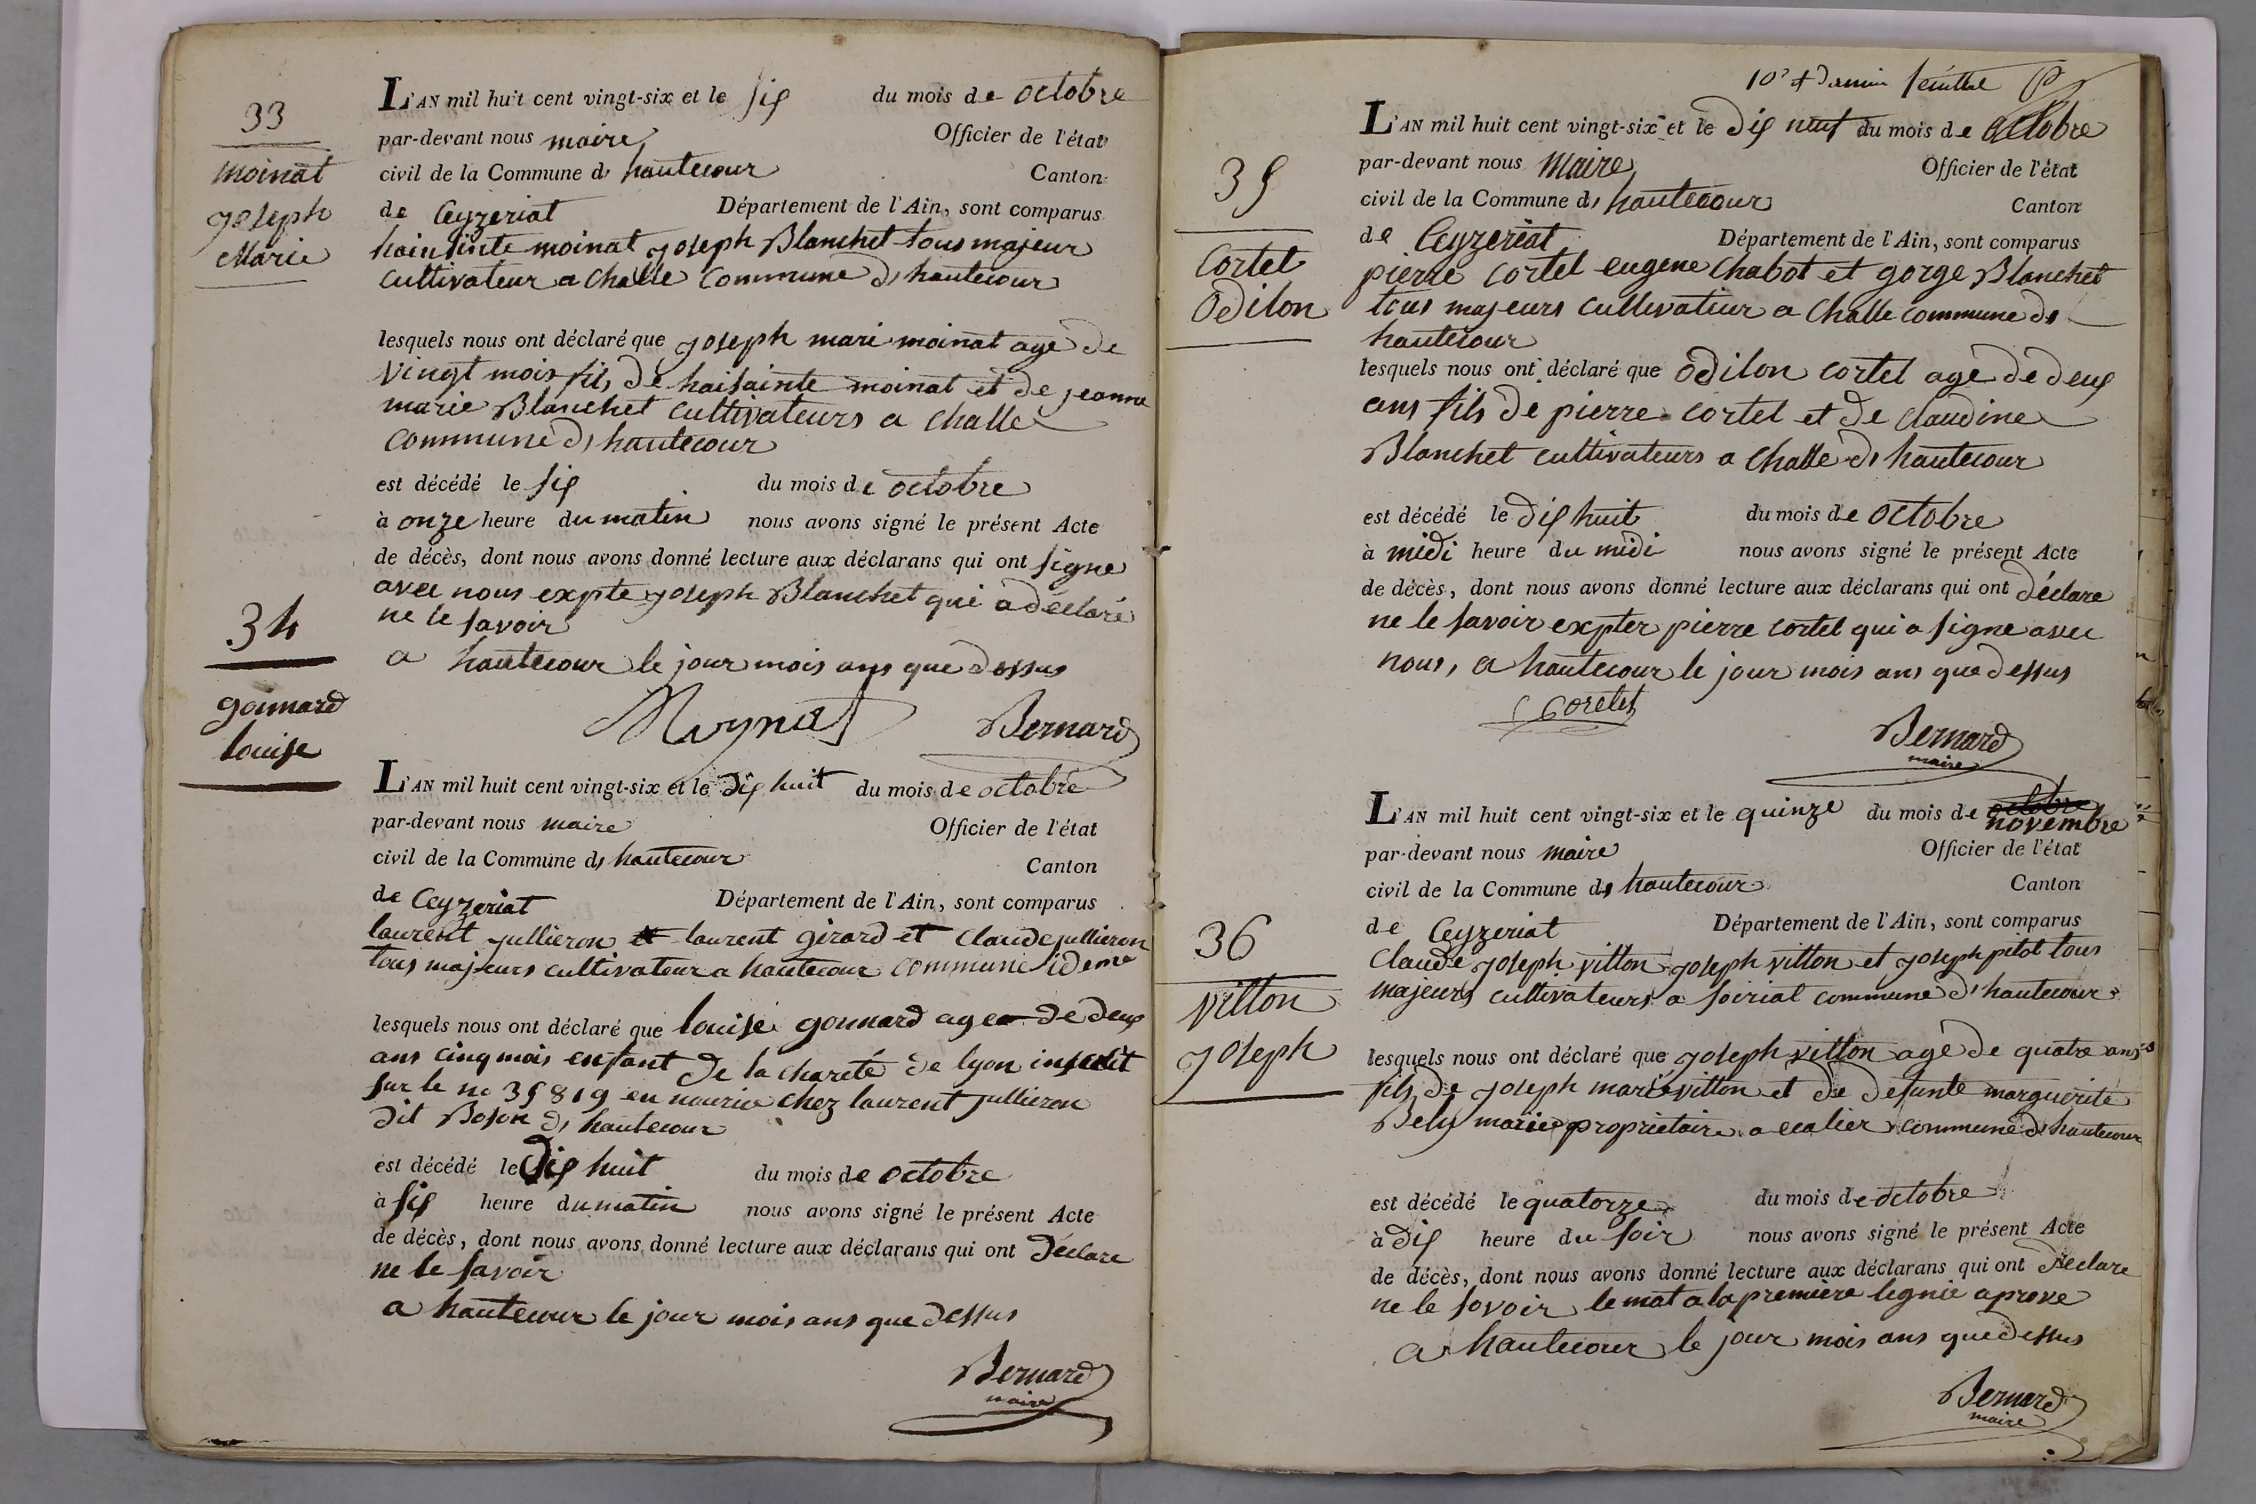 33
moinat
joseph
Marie
L'AN mil huit cent vingt-six et le six du mois de octobre
par-devant nous maire Officier de l'état
civil de la Commune d, hautecour Canton
de Ceyzeriat Département de l'Ain, sont comparus
moinat joseph Blanchet tous majeur
cultivateur a Challe Commune d, hautecour
lesquels nous ont déclaré que joseph mari moinat age de
vingt mois fils de haisainte moinat et de jeanne
marie Blanchet cultivateurs a challe
commune d, hautecour
est décédé le six du mois de octobre
à onze heure du matin nous avons signé le présent Acte
de décès, dont nous avons donné lecture aux déclarans qui ont signe
avec nous expte joseph Blanchet qui a déclaré
ne le savoir
a hautecour le jour mois ans que dessus
Moynat Bernard
34
gonnard
louise
L'AN mil huit cent vingt-six et le dix huit du mois de octobre
par-devant nous maire Officier de l'état
civil de la Commune d, hautecour Canton
de Ceyzeriat Département de l'Ain, sont comparus
laurent jullieron et laurent girard et Claude jullieron
tous majeurs cultivateur a hautecour commune ideme
lesquels nous ont déclaré que louise gonnard agee de deux
ans cinq mois enfant de la chareté de lyon inscrit
sur le no 35819 en nourice chez laurent jullieron
dit Boson d, hautecour
est décédé le dix huit du mois de octobre
à six heure du matin nous avons signé le présent Acte
de décès, dont nous avons donné lecture aux déclarans qui ont déclare
ne le savoir
a hautecour le jour mois ans que dessus
Bernard
maire
10e
35
Cortet
Odilon
L'AN mil huit cent vingt-six et le dix neuf du mois de octobre
par-devant nous maire Officier de l'état
civil de la Commune d, hautecour Canton
de Ceyzeriat Département de l'Ain, sont comparus
pierre cortet eugene Chabot et gorge Blanchet
tous majeurs cultivatiur a Challe commune d,
hautecour
lesquels nous ont déclaré que Odilon cortet age de deux
ans fils de pierre cortet et de claudine
Blanchet cultivateurs a Challe d, hautecour
est décédé le dix huit du mois de octobre
à midi heure du midi nous avons signé le présent Acte
de décès, dont nous avons donné lecture aux déclarans qui ont déclare
ne le savoir expter pierre cortet qui a signe avec
nous, a hautecour le jour mois ans que dessus
Corelet
Bernard
maire
36
vitton
joseph
L'AN mil huit cent vingt-six et le quinze du mois de octobre
novembre
par-devant nous maire Officier de l'état
civil de la Commune d, hautecour Canton
de Ceyzeriat Département de l'Ain, sont comparus
Claude joseph vitton joseph vitton et joseph pitot tous
majeurs cultivateurs a soiriat commune d'hautecour
lesquels nous ont déclaré que joseph vitton agé de quatre ans
fils de joseph marie vitton et de defunte marguerite
Bely proprietaire a commune d, hautecour
est décédé le quatorze du mois de octobre
à dix heure du soir nous avons signé le présent Acte
de décès, dont nous avons donné lecture aux déclarans qui ont déclare
ne le sovoir le mot a la premiere lignie aprove
a hautecour le jour mois ans que dessus
Bernard
maire